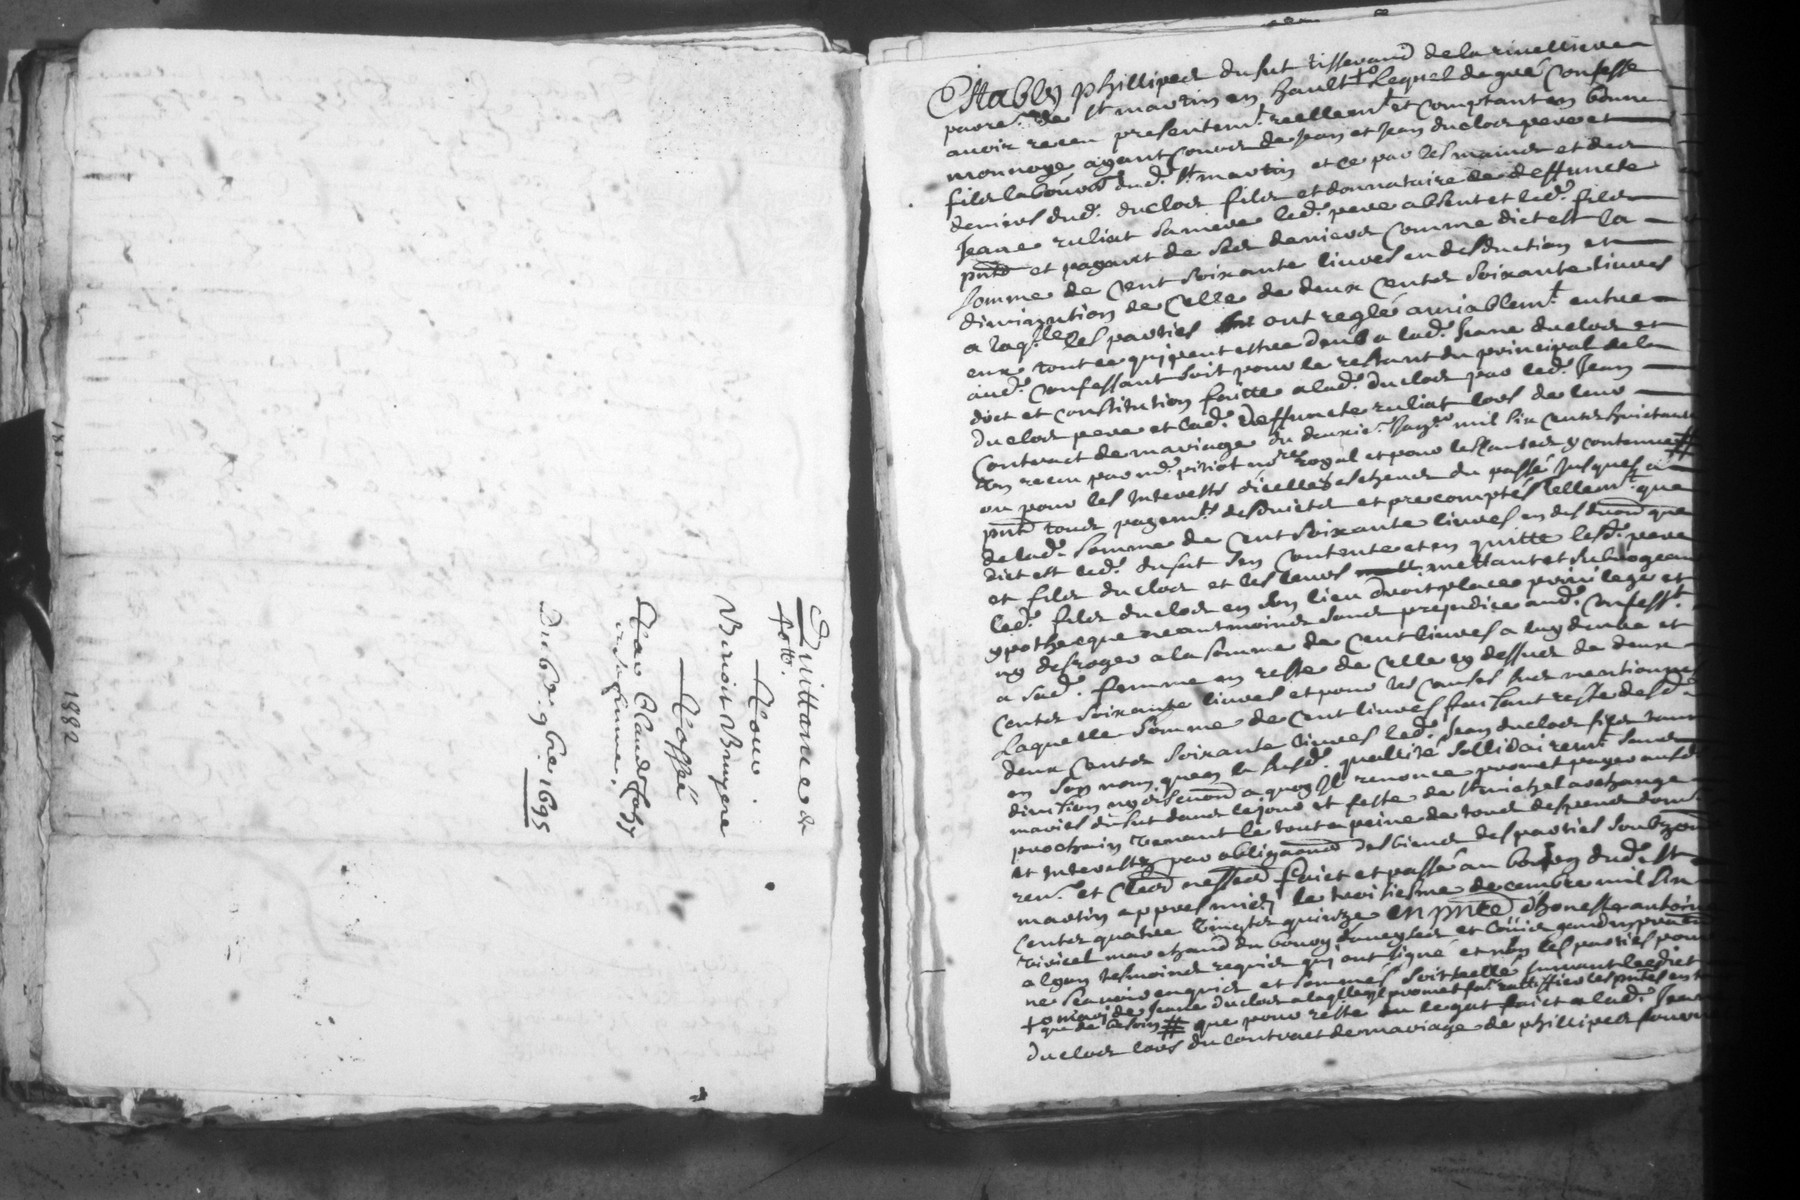 Quittance de
40lt.
Pour
Benoit Bruyere
Passée
Par Claud Paby
et sa femme.
Du 6e. 9bre 1695
1882
Estably phillipes dusut tisserand de la rivelliere
parre. de st martin en hault +o lequel de gré confesse
avoir receu presentemt. reellemt. et comptant en bonne
monnoye ayant cours de Jean et Jean duclos pere et
fils laboureurs dud. st. martin et ce par les mains et des
deniers dud. duclos fils et donnataire de deffuncte
Jeane ruliat sa mere led. pere absent et led. fils
pnt et payant de ses deniers comme dict est la
somme de cent soixante livres en desduction et
diminution de celle de deux centz soixante livres
a laqlle les parties ont reglé amiablemt. entre
eux tout ce qui peut estre deub a lad. Jeane duclos et
aud. confessant soit pour le restant du principal de la
dict et constitution faitte a lad. duclos par led. Jean
duclos pere et lad. deffuncte ruliat lors de leur
contract de mariage du mil six centz huictante
un receu par me. pitiot nore royal et pour les y contenues #
ou pour les interests d'icelles escheus du passé jusques a
pnt tous payemts. desduictz et precomptés tellemt. que
de lad. somme de cent soixante livres en desduction que
dict est led. dusut s'en contente et en quitte lesd. pere
et fils duclos et les leurs mettant et subrogeant
led. fils duclos en son lieu droit place privilege et
ypotheque neantmoings sans prejudice aud. confesst.
ny desroger a la somme de cent livres a luy deube et
a sad. femme en reste de celle cy dessus de deux
centz soixante livres et pour les causes sus mentionnées
Laquelle somme de cent livres faisant reste desd.
deux centz soixante livres led. Jean duclos fils tant
en son nom quen la susd. qualité sollidairemt. sans
division ny discution a quoy il renonce promet payer ausd.
mariés dusut dans le jour et feste de st michel archange
prochain venant le tout a peine de tous despens dom.
et interestz par obligaon des biens des parties soubz
ren. et claus nessres faict et passé au bourg dud. st
martin appres midy le troisiesme decembre mil six
centz quatre vingtz quinze en pnce d'honeste antoine
vivicel marchand du bourg d'aveyses et
tesmoins requis qui ont signé et non les parties pour
ne scavoir enquis et sommés soit scellé suivant leedict
+o mary de Jeane duclos a laqlle il promet fai ratiffier les pntes en t
que de besoin # que pour reste du legat faict a lad. Jeane
duclos lors du contract de mariage de phillipes